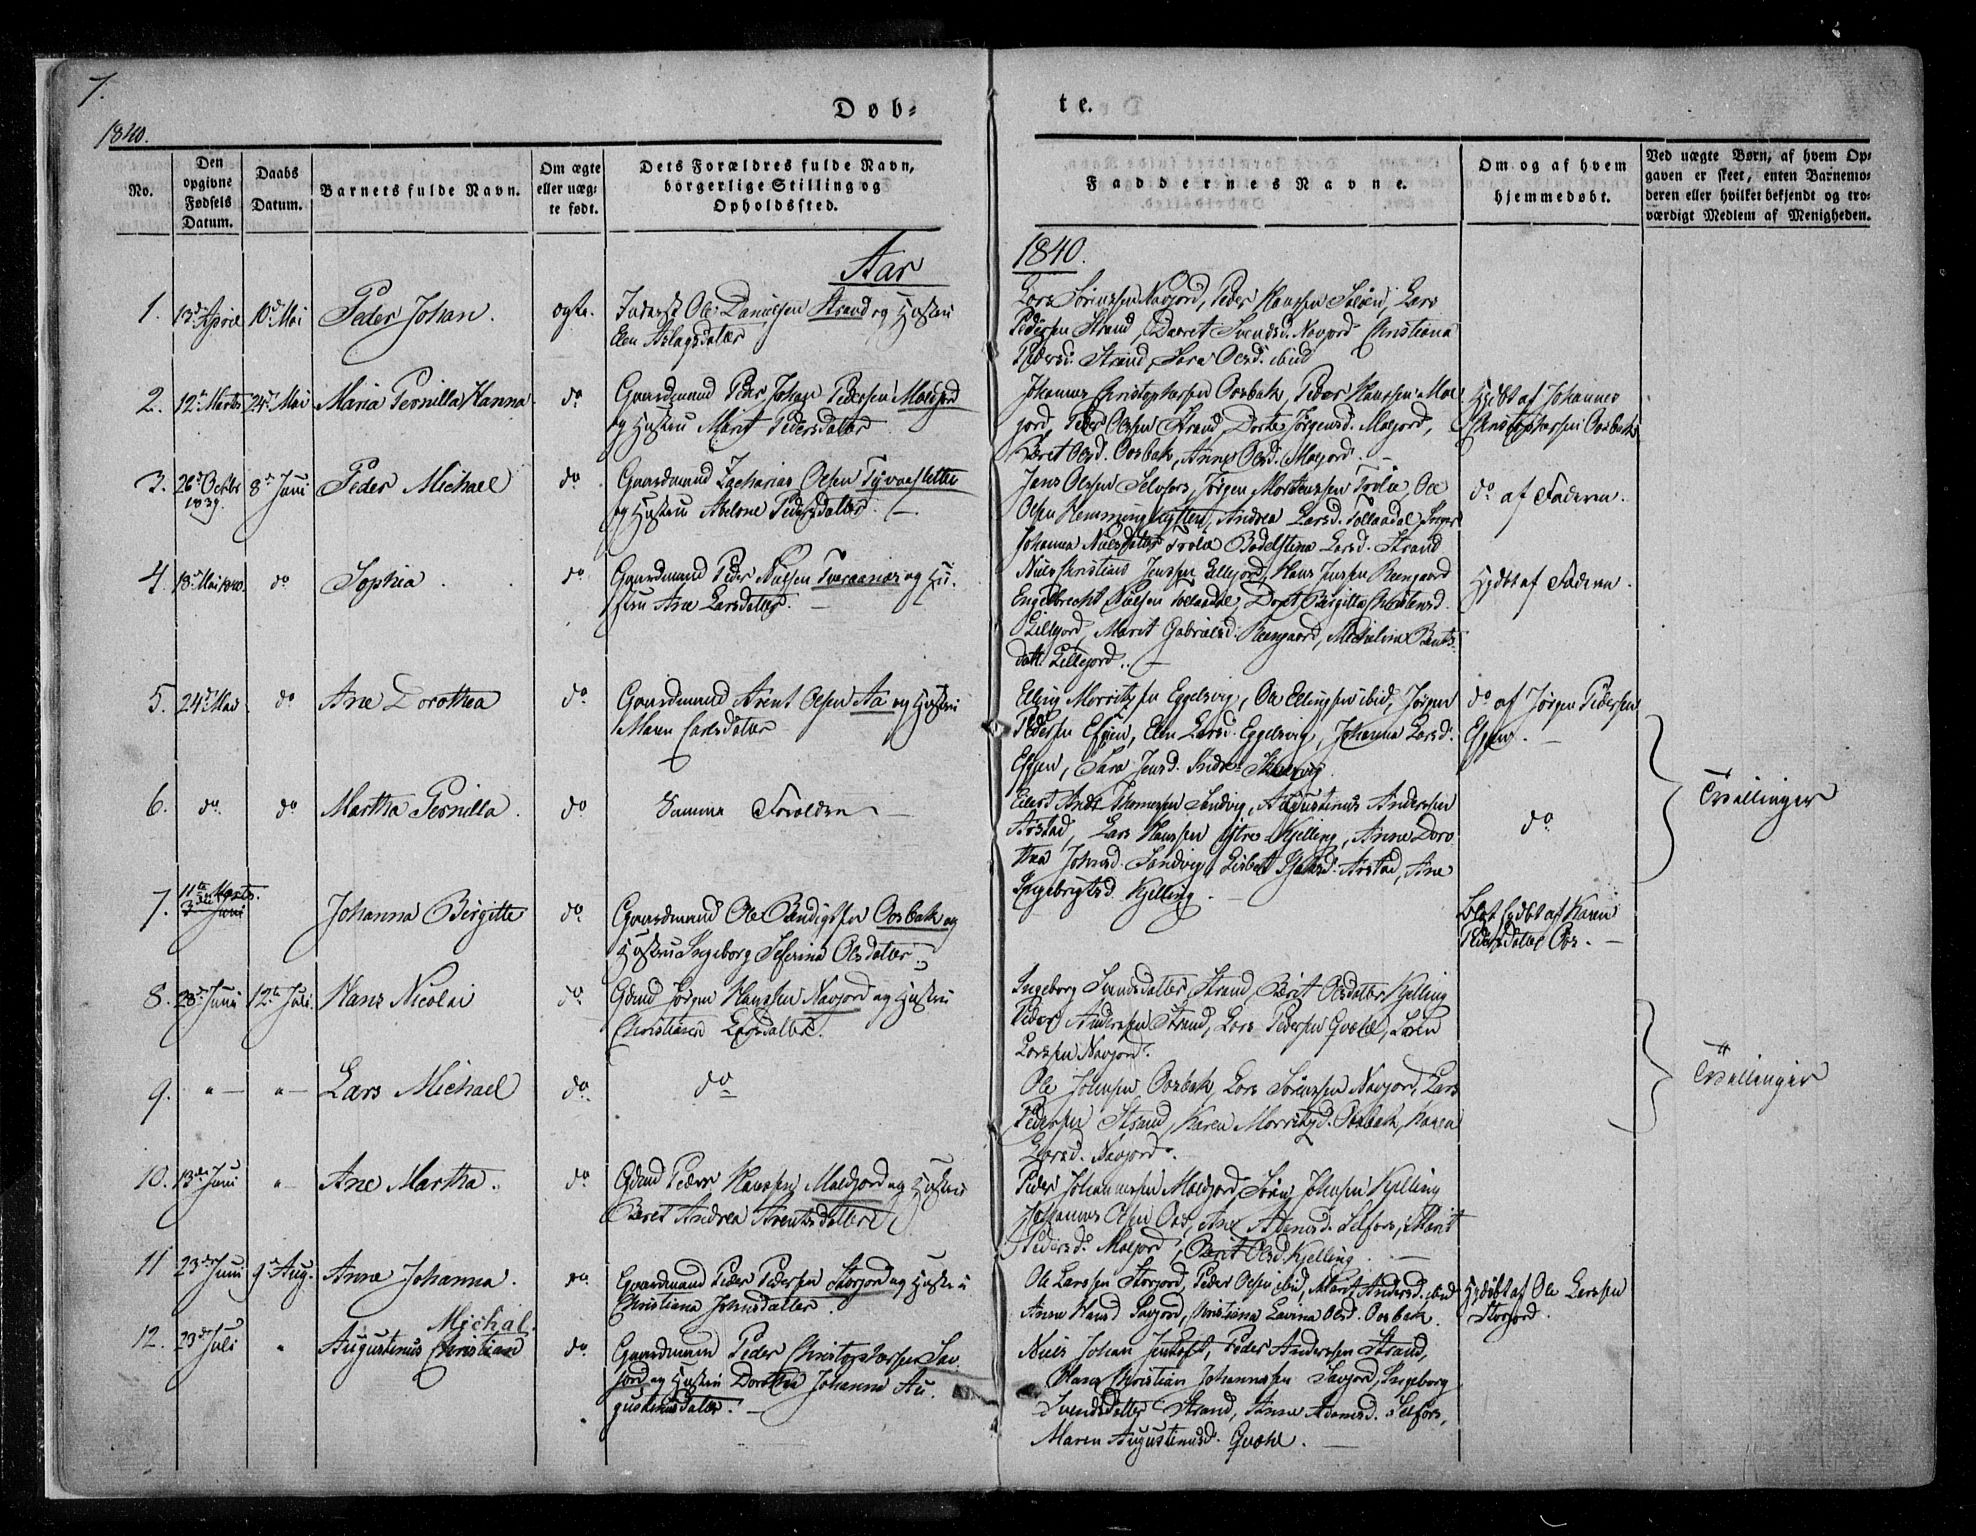 7.
Døb-
te.
1840.
No.
Den
opgivne
Fødsels
Datum.
Daabs
Datum.
Barnets fulde Navn.
Om ægte
eller uæg-
te født.
Dets Forældres fulde Navn,
borgerlige Stilling og
Opholdssted.
Faddernes Navne.
Om og af hvem
hjemmedøbt.
Ved uægte Børn, af hvem Op-
gaven er skeet, enten Barnemo-
deren eller hvilket bekjendt og tro-
værdigt Medlem af Menigheden.
Aar
1840.
1. 13de April 10de Mai Peder Johan. ægte. Inderst Ole Danielsen Strand og Hustru
Elen Aslagsdatter
Lars Sørenssen Navjord, Peder Hanssen Soløen, Lars
Pedersen Strand, Beret Svendsd. Navjord Christiana
Pedersd. Strand, Sara Olsd. ibid
2. 12te Marts 24de Mai Maria Pernilla Hanna do Gaardmand Peder Johan Pedersen Maldjord
og Hustru Marit Pedersdatter
Johannes Christophersen Oosbak, Peder Hanssen Mal-
jord, Peder Olssen Strand, Dorte Jørgensd. Maljord,
Beret Olsd. Oosbak, Anne Olsd. Maljord.
Hjdbt af Johannes
Christophersen Oosbak
3. 26de Octbr 1839. 8de Juni Peder Michael do Gaardmand Zacharias Olsen Tvraasletten
og Hustru Abelone Pedersdatter.
Jens Olssen Selfors, Jørgen Mortenssen Trolie, Ole
Olsen Hemming, Andrea Larsd. Tollaadal,
Johanna Nielsdatter Trolie Bodelstina Larsd. Strand
do af Faderen.
4. 18de Mai 1840. do Sophia. do Gaardmand Peder Nielsen Tveraanes og Hu-
stru Ane Larsdatter.
Niels Christians Jenssen Lillejord, Hans Jenssen Reengaard
Engelbrecht Nielsen Tollaadal, Dort Birgitta Christensd.
Lillejord, Marit Gabrielsd. Reengaard, Bents-
datt. Lillejord.
Hjdbt af Faderen.
5. 24de Mai do Ane Dorothea do Gaardmand Arent Olsen Aa og Hustru
Maren Carlsdatter
Elling Morritzsen Eggelsvig, Ole Ellingsen ibid, Jørgen
Pedersen Efjen, Elen Larsd. Eggelsvig, Johanna Larsd.
Efjen, Sara Jensd. Indre-
do af Jørgen Pedersen
Efjen.
6. do do Martha Pernilla. do Samme Forældre
Eilert Andr Thomessen Sandvig, Augustinus Anderssen
Arstad, Lars Hanssen Ytre-Kjelling, Anne Doro-
thea Johnsd. Sandvig, Lisbet Arstad, Ane
Ingebrigtsd. Kjelling.
do
Tvillinger
7. 11te Marts. 3 Juni Johanna Birgitte do. Gaardmand Ole Bendigtsen Oosbak og
Hustru Ingeborg Seferina Olsdatter.
Blot hjdbt af Karen
Pedersdatter Oos.
8. 28de Juni 12te Juli. Hans Nicolai do. Gdmd Jørgen Hanssen Navjord og Hustru
Christiana Larsdatter.
Ingeborg Svendsdatter Strand, Berit Olsdatter Kjelling
Peder Anderssen Strand, Lars Pedersen Gvæhl, Søren
Larssen Navjord.
9. " " Lars Michael do. do
Ole Johnsen Oosbak, Lars Sørenssen Navjord, Lars
Pedersen Strand, Karen Morritzd. Oosbak, Karen
Larsd. Navjord.
Tvillinger
10. 13de Juni " Ane Martha. do Gdmd Peder Hanssen Maldjord og Hustru
Beret Andrea Arentsdatter
Peder Johannessen Maldjord, Søren Johnsen Kjelling
Johannes Olsen Oos, Ane Adamsd. Selfors, Marit
Pedersd. Maljord, Berit Olsd. Kjelling.
11 23de Juni 9de Aug. Anne Johanna. do Gaardmand Peder Pedersen Storjord og Hustru
Christiana Johnsdatter.
Ole Larssen Storjord, Peder Olsen ibid, Marit Andersd. ibid
Anne Hansd Savjord, Christiana Lavina Olsd. Oosbak.
Hjdøbt af Ole Larssen
Storjord.
12. 23de Juli " Augustinus Christian Michal. do Gaardmand Peder Christophersen Sav-
jord og Hustru Dorothea Johanna Au-
gustinusdatter.
Niels Johan Jentoft, Peder Anderssen Strand,
Hans Christian Johannessen Savjord, Ingeborg
Svendsdatter Strand, Anne Adamsd. Selfors,
Maren Augustinusd. Gvæhl.